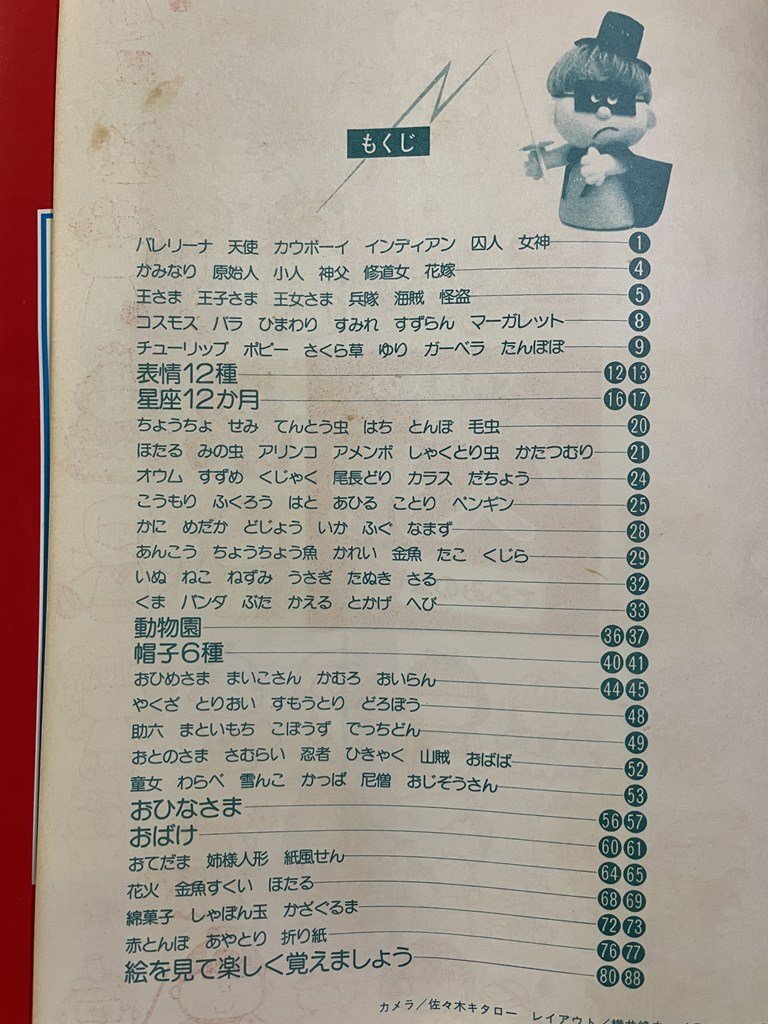 もくじ
バレリーナ 天使 カウボーイ インディアン 囚人 女神 1
かみなり 原始人 小人 神父 修道女 花嫁 4
王さま 王子さま 王女さま 兵隊 海賊 怪盗 5
コスモス バラ ひまわり すみれ すずらん マーガレット 8
チューリップ ポピー さくら草 ゆり ガーベラ たんぽぽ 9
表情12種 12 13
星座12か月 16 17
ちょうちょ せみ てんとう虫 はち とんぼ 毛虫 20
ほたる みの虫 アリンコ アメンボ しゃくとり虫 かたつむり 21
オウム すずめ くじゃく 尾長どり カラス だちょう 24
こうもり ふくろう はと あひる ことり ペンギン 25
かに めだか どじょう いか ふぐ なまず 28
あんこう ちょうちょう魚 かれい 金魚 たこ くじら 29
いぬ ねこ ねずみ うさぎ たぬき さる 32
くま パンダ ぶた かえる とかげ へび 33
動物園 36 37
帽子6種 40 41
おひめさま まいこさん かむろ おいらん 44 45
やくざ とりおい すもうとり どろぼう 48
助六 まといもち こぼうず でっちどん 49
おとのさま さむらい 忍者 ひきゃく 山賊 おばば 52
童女 わらべ 雪んこ かっぱ 尼僧 おじぞうさん 53
おひなさま 56 57
おばけ 60 61
おてだま 姉様人形 紙風せん 64 65
花火 金魚すくい ほたる 68 69
綿菓子 しゃぼん玉 かざぐるま 72 73
赤とんぼ あやとり 折り紙 76 77
絵を見て楽しく覚えましょう 80 88
カメラ/佐々木キタロー レイアウト/